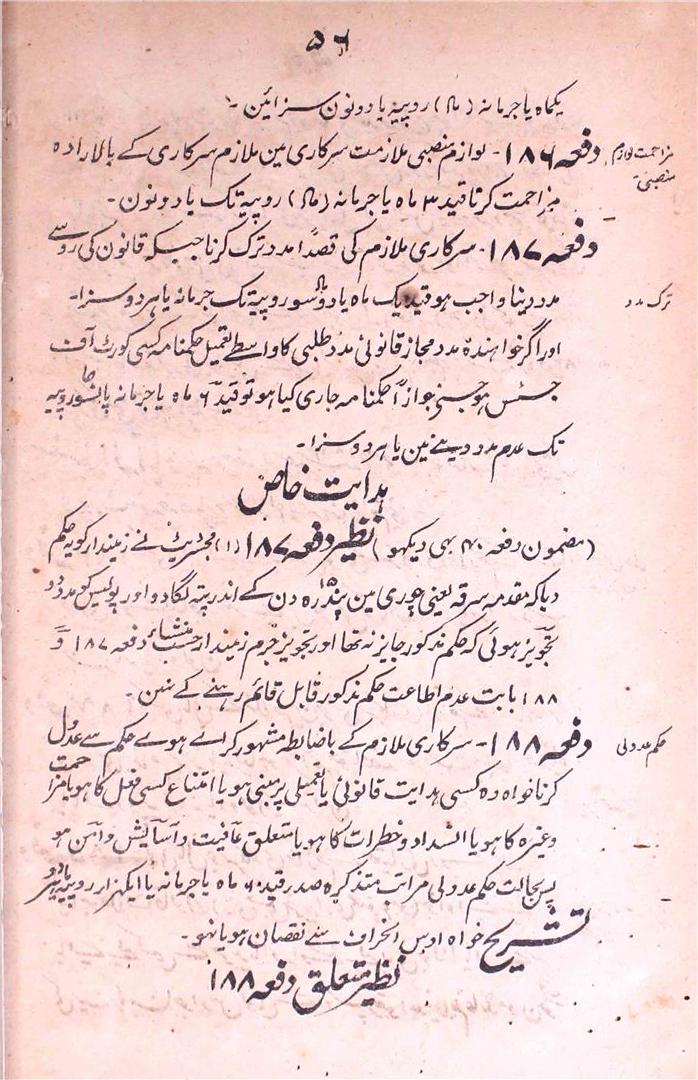 ۵۶
یکماہ یا جرمانہ (ما) روپیہ یا دونون سزائین ۔
مزاحمت لوازم منصبی
دفعہ ۱۸۶ - لوازم منصبی ملازمت سرکاری مین ملازم سرکاری کے بالارادہ
مزاحمت کرنا قید ۳ ماہ یا جرمانہ (ما) روپیہ تک یا دونون ۔
دفعہ ۱۸۷ - سرکاری ملازم کی قصدًا مدد ترک کرنا جبکہ قانون کی روسے
ترک مدد
مدد دینا واجب ہو قید یک ماہ یا دوسو روپیہ تک جرمانہ یا ہر دو سزا ۔
اور اگر خواہندہ مدد مجاز قانونی مدد طلبی کا واسطے تعمیل حکمنامہ کسی کورٹ آف
جسٹس ہو جسنے جوازاً حکمنامہ جاری کیا ہو تو قید ۶ ماہ یا جرمانہ پانسو روپیہ
تک عدم مدد دینے مین یا ہر دو سزا ۔
ہدایت خاص
(مضمون دفعہ ۴۰ بھی دیکھو) نظیر دفعہ ۱۸۷ (۱) مجسٹریٹ نے زمیندار کو یہ حکم
دیا کہ مقدمہ سرقہ یعنی چوری مین پندرہ دن کے اندر پتہ لگا دو اور پولیس کو مدد دو
تجویز ہوئی کہ حکم مذکور جایز نہ تھا اور تجویز جرم زمیندار حسب منشاء دفعہ ۱۸۷ و
۱۸۸ بابت عدم اطاعت حکم مذکور قابل قائم رہنے کے نہین ۔
حکم عدولی
دفعہ ۱۸۸ - سرکاری ملازم کے باضابطہ مشہور کرائے ہوے حکم سے عدول
کرنا خواہ وہ کسی ہدایت قانونی یا تعمیلی پر مبنی ہو یا امتناع کسی فعل کا ہو یا مزاحمت
وغیرہ کا ہو یا انسداد و خطرات کا ہو یا متعلق عافیت و آسایش و امن ہو
پس بحالت حکم عدولی مراتب متذکرہ صدر قید ۶ ماہ یا جرمانہ یا ایکہزار روپیہ
تشریح خواہ اوس انحراف سے نقصان ہو یا نہو ۔
نظیر متعلق دفعہ ۱۸۸